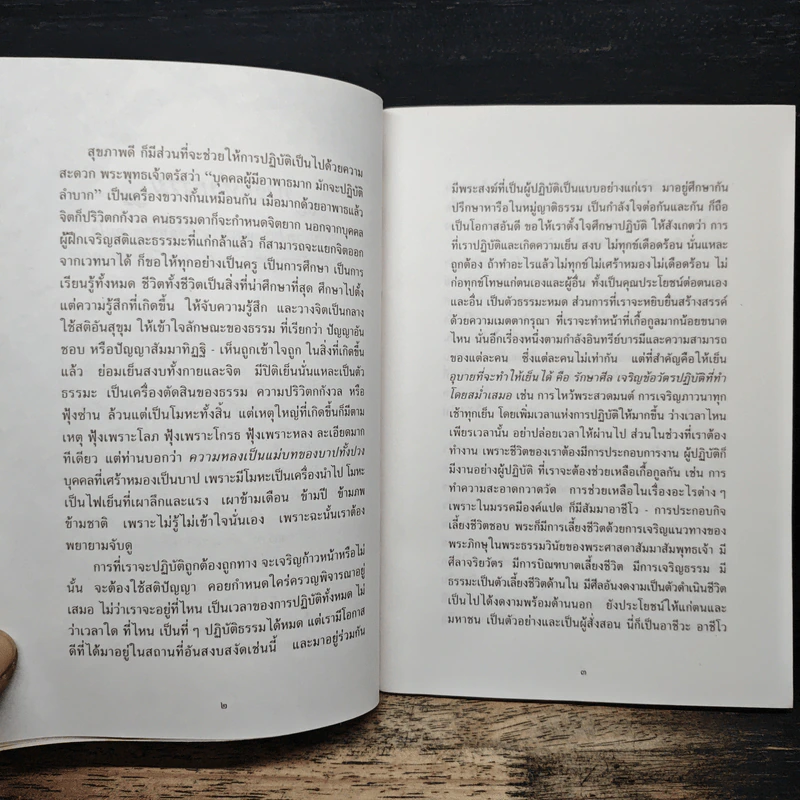 สุขภาพดี ก็มีส่วนที่จะช่วยให้การปฏิบัติเป็นไปด้วยความ
สะดวก พระพุทธเจ้าตรัสว่า “บุคคลผู้มีอาพาธมาก มักจะปฏิบัติ
ลำบาก” เป็นเครื่องขวางกันเหมือนกัน เมื่อมากด้วยอาพาธแล้ว
จิตก็ปริวิตกกังวล คนธรรมดาก็จะกำหนดจิตยาก นอกจากบุคคล
ผู้ฝึกเจริญสติและธรรมะที่แก่กล้าแล้ว ก็สามารถจะแยกจิตออก
จากเวทนาได้ ก็ขอให้ทุกอย่างเป็นครู เป็นการศึกษา เป็นการ
เรียนรู้ทั้งหมด ชีวิตทั้งชีวิตเป็นสิ่งที่น่าศึกษาที่สุด ศึกษาไปตั้ง
แต่ความรู้สึกที่เกิดขึ้น ให้จับความรู้สึก และวางจิตเป็นกลาง
ใช้สติอันสุขุม ให้เข้าใจลักษณะของธรรม ที่เรียกว่า ปัญญาอัน
ชอบ หรือปัญญาสัมมาทิฏฐิ - เห็นถูกเข้าใจถูก ในสิ่งที่เกิดขึ้น
แล้ว ย่อมเย็นสงบทั้งกายและจิต มีปิติเย็นนั่นแหละเป็นตัว
ธรรมะ เป็นเครื่องตัดสินของธรรม ความปริวิตกกังวล หรือ
ฟุ้งซ่าน ล้วนแต่เป็นโมหะทั้งสิ้น แต่เหตุใหญ่ที่เกิดขึ้นก็มีตาม
เหตุ ฟุ้งเพราะโลภ ฟุ้งเพราะโกรธ ฟุ้งเพราะหลง ละเอียดมาก
ทีเดียว แต่ท่านบอกว่า ความหลงเป็นแม่บทของบาปทั้งปวง
บุคคลที่เศร้าหมองเป็นบาป เพราะมีโมหะเป็นเครื่องนำไป โมหะ
เป็นไฟเย็นที่เผาลึกและแรง เผาข้ามเดือน ข้ามปี ข้ามภพ
ข้ามชาติ เพราะไม่รู้ไม่เข้าใจนั่นเอง เพราะฉะนั้นเราต้อง
พยายามจับดู
การที่เราจะปฏิบัติถูกต้องถูกทาง จะเจริญก้าวหน้าหรือไม่
นั้น จะต้องใช้สติปัญญา คอยกำหนดใคร่ครวญพิจารณาอยู่
เสมอ ไม่ว่าเราจะอยู่ที่ไหน เป็นเวลาของการปฏิบัติทั้งหมด ไม่
ว่าเวลาใด ที่ไหน เป็นที่ ๆ ปฏิบัติธรรมได้หมด แต่เรามีโอกาส
ดีที่ได้มาอยู่ในสถานที่อันสงบสงัดเช่นนี้ และมาอยู่ร่วมกัน
๒
มีพระสงฆ์ที่เป็นผู้ปฏิบัติเป็นแบบอย่างแก่เรา มาอยู่ศึกษากัน
ปรึกษาหารือในหมู่ญาติธรรม เป็นกำลังใจต่อกันและกัน ก็ถือ
เป็นโอกาสอันดี ขอให้เราตั้งใจศึกษาปฏิบัติ ให้สังเกตว่า การ
ที่เราปฏิบัติและเกิดความเย็น สงบ ไม่ทุกข์เดือดร้อน นั่นแหละ
ถูกต้อง ถ้าทำอะไรแล้วไม่ทุกข์ไม่เศร้าหมองไม่เดือดร้อน ไม่
ก่อทุกข์โทษแก่ตนเองและผู้อื่น ทั้งเป็นคุณประโยชน์ต่อตนเอง
และอื่น เป็นตัวธรรมะหมด ส่วนการที่เราจะหยิบยื่นสร้างสรรค์
ด้วยความเมตตากรุณา ที่เราจะทำหน้าที่เกื้อกูลมากน้อยขนาด
ไหน นั่นอีกเรื่องหนึ่งตามกำลังอินทรีย์บารมีและความสามารถ
ของแต่ละคน ซึ่งแต่ละคนไม่เท่ากัน แต่ที่สำคัญคือให้เย็น
อุบายที่จะทำให้เย็นได้ คือ รักษาศีล เจริญข้อวัตรปฏิบัติที่ทำ
โดยสม่ำเสมอ เช่น การไหว้พระสวดมนต์ การเจริญภาวนาทุก
เช้าทุกเย็น โดยเพิ่มเวลาแห่งการปฏิบัติให้มากขึ้น ว่างเวลาไหน
เพียรเวลานั้น อย่าปล่อยเวลาให้ผ่านไป ส่วนในช่วงที่เราต้อง
ทำงาน เพราะชีวิตของเราต้องมีการประกอบการงาน ผู้ปฏิบัติก็
มีงานอย่างผู้ปฏิบัติ ที่เราจะต้องช่วยเหลือเกื้อกูลกัน เช่น การ
ทำความสะอาดกวาดวัด การช่วยเหลือในเรื่องอะไรต่าง ๆ
เพราะในมรรคมีองค์แปด ก็มีสัมมาอาชีโว - การประกอบกิจ
เลี้ยงชีวิตชอบ พระก็มีการเลี้ยงชีวิตด้วยการเจริญแนวทางของ
พระภิกษุในพระธรรมวินัยของพระศาสดาสัมมาสัมพุทธเจ้า มี
ศีลาจริยวัตร มีการบิณฑบาตเลี้ยงชีวิต มีการเจริญธรรม มี
ธรรมะเป็นตัวเลี้ยงชีวิตด้านใน มีศีลอันงดงามเป็นตัวดำเนินชีวิต
เป็นไปได้งดงามพร้อมด้านนอก ยังประโยชน์ให้แก่ตนและ
มหาชน เป็นตัวอย่างและเป็นผู้สั่งสอน นี่ก็เป็นอาชีวะ อาชีโว
๓